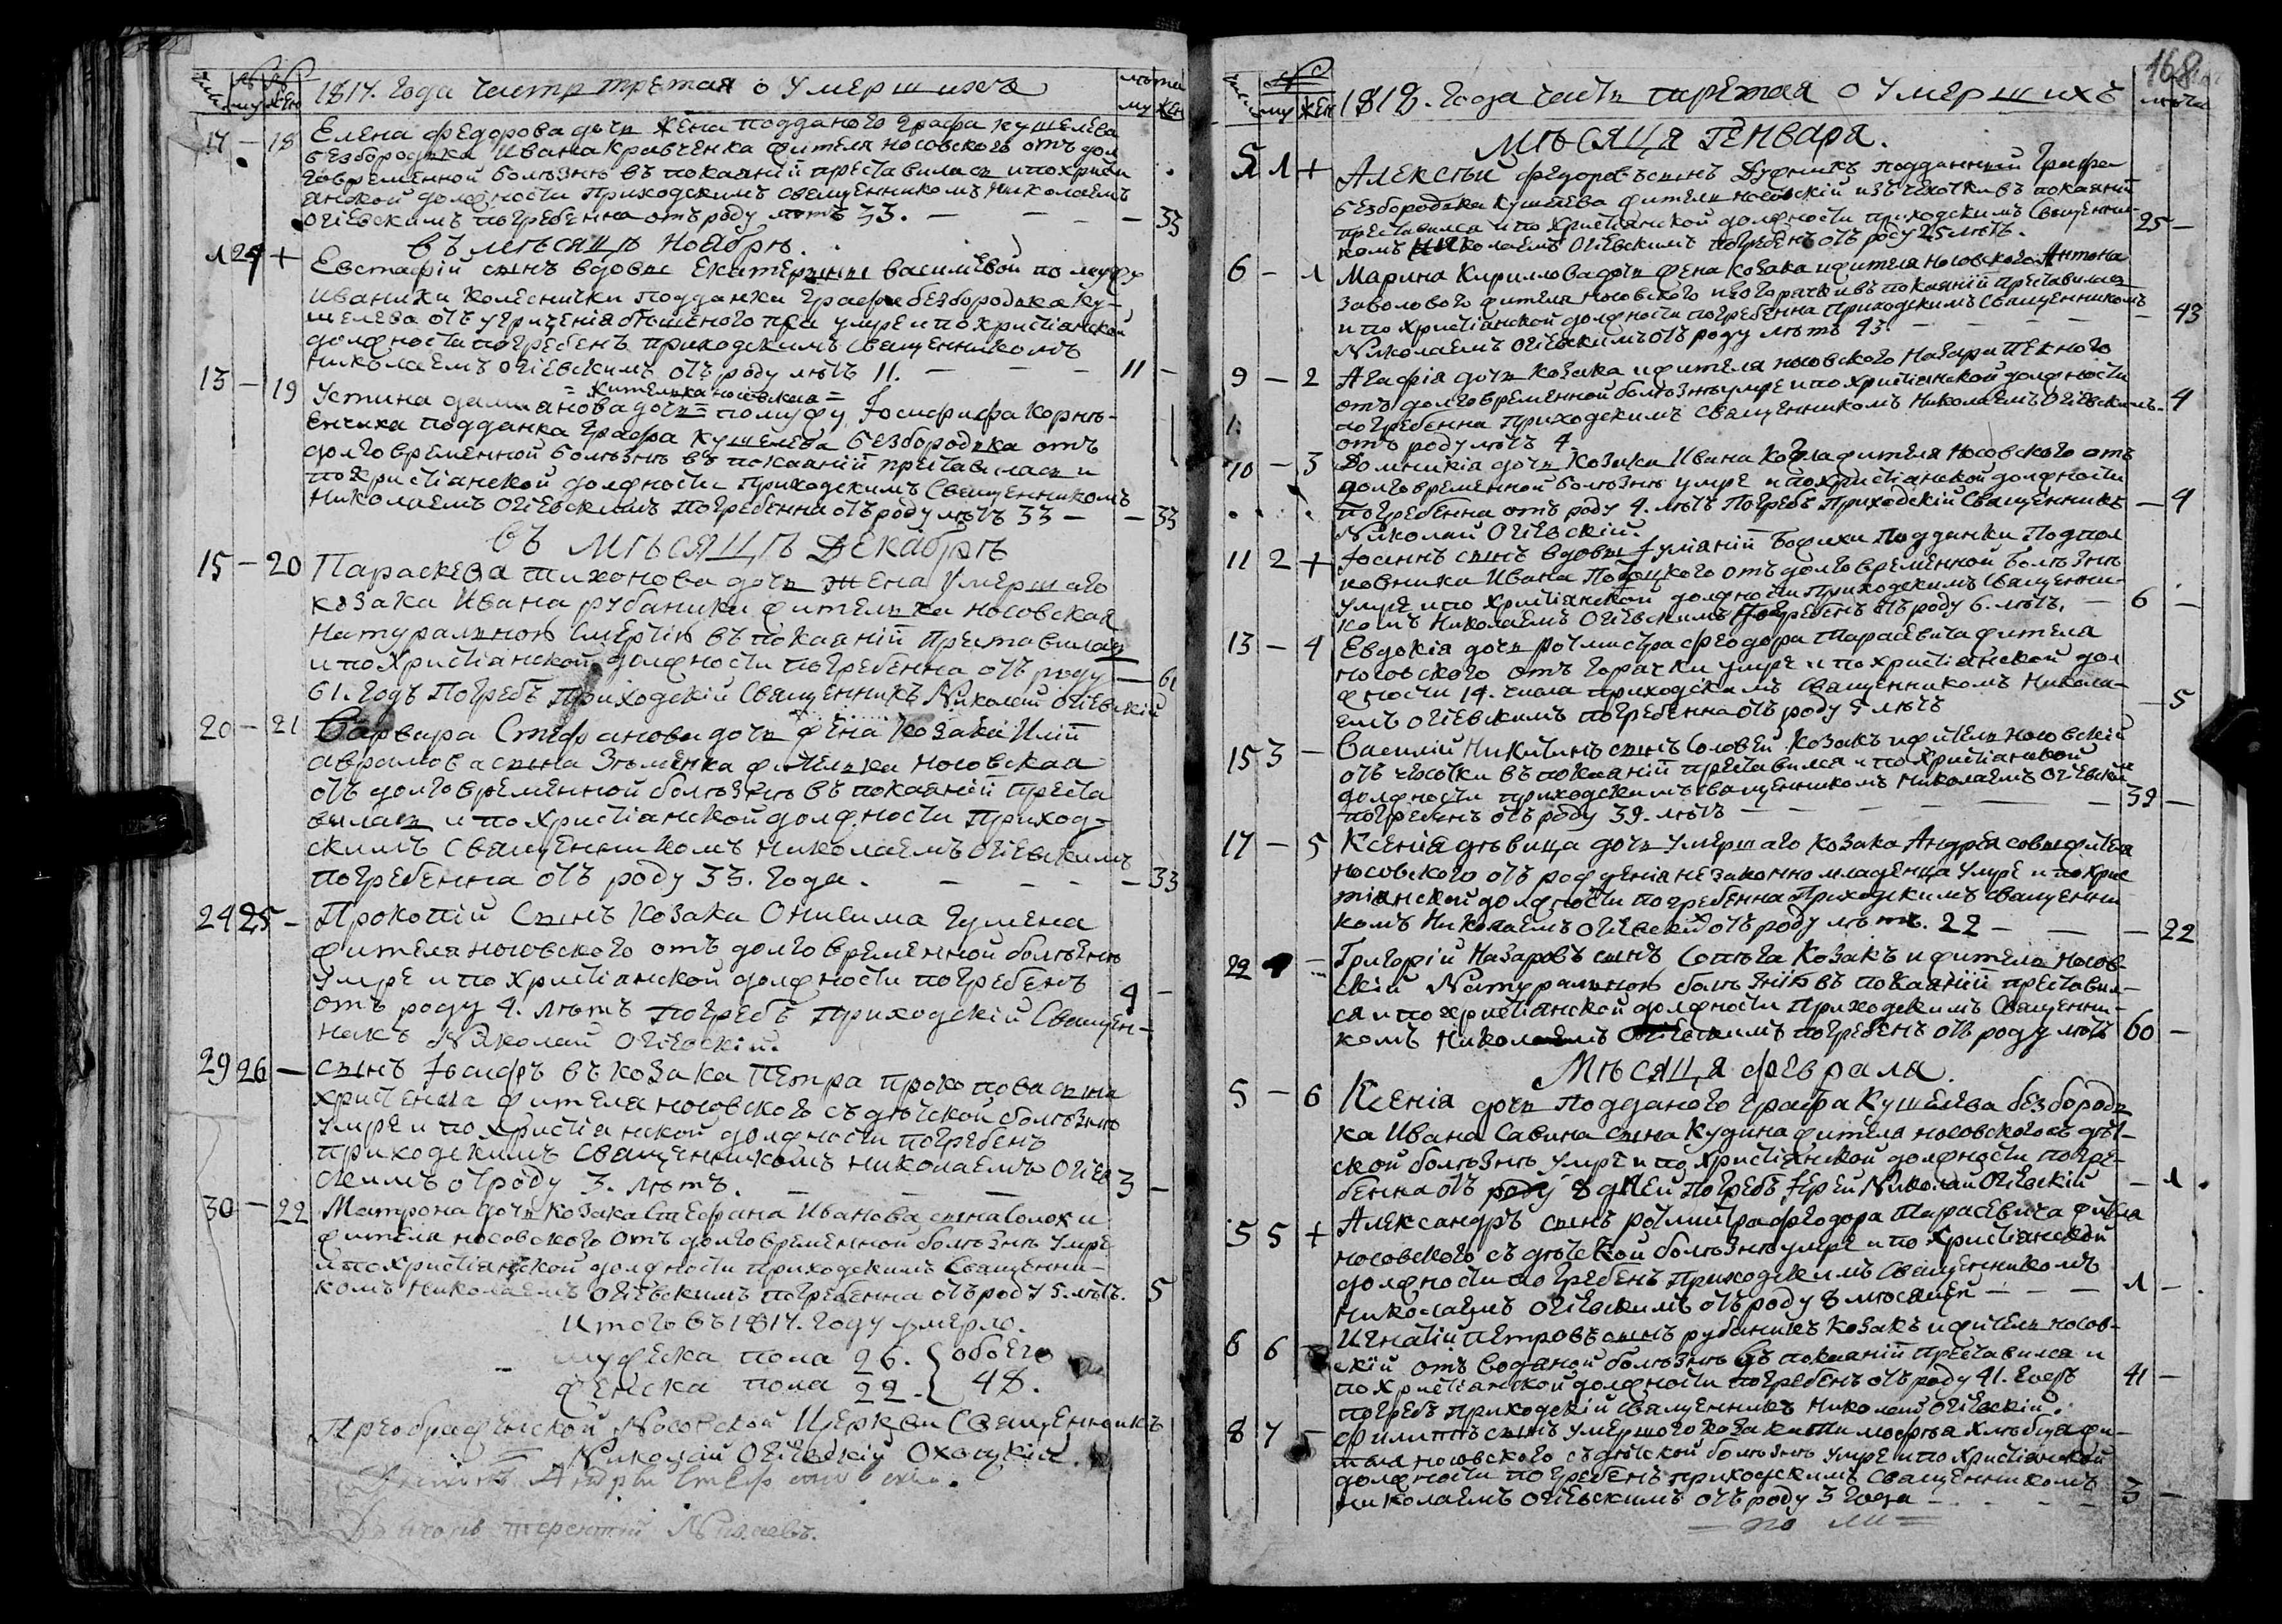 1817. Года часть третая о Умершихъ
му жен
лѣта
му жен
17 — 18 Елена федорова дочь жена подданого Графа кушелева
безбородька Ивана кравченка жителя носовского отъ дол
говременной болѣзни въ покаянїй преставилась и похристи
анской должности приходскимъ священникомъ Николаемъ
Огіевскимъ погребенна отъ роду лѣтъ 33. — — — — 33
въ мѣсяцѣ Ноябрѣ.
1 24 + Евстафій сынъ вдовы Екатерины василіевой по мужу
иванихи колеснички подданки Графа безбородька Ку-
шелева отъ угриченія бѣшеного пса умре и по христіанской
должности погребенъ приходскимъ священникомъ
николаемъ огіевскимъ отъ роду лѣтъ 11. — — — 11 —
= жителька носовская =
13 — 19 Устина даміянова дочь = помужу Іосифифа Корнѣ-
енчиха подданка Графа кушелева безбородька отъ
долговременной болѣзни въ покаянїй преставилась и
по христіанской должности приходскимъ Священникомъ
Николаемъ Огіевскимъ погребенна отъ роду лѣтъ 33 — — 33
въ мѣсяцѣ Декабрѣ
15 — 20 Параскева тихонова дочь жена Умершаго
козака Ивана рубаника жителька носовская
натуральною смертію въ покаянїй преставилась
и по христіанской должности погребенна отъ роду — 61
61. годъ погребъ приходскій Священникъ Николай Огіевскій
20 — 21 Варвара Стефанова дочь жена козака Илій
аврамова сына Зѣменка жителька носовская
отъ долговременной болѣзни въ покаянїй преста
вилась и по христіанской должности приход-
скимъ священникомъ николаемъ огіевскимъ
погребенна отъ роду 33. года. — — — — 33
24 25 — Прокопій Сынъ козака Онисима Гумена
жителя носовского отъ долговременной болѣзни
Умре и по христіанской должности погребенъ
отъ роду 4. лѣтъ погребъ приходскій Священ- 4 —
никъ Николай Огіевскій.
29 26 — сынъ Іосифъ въ козака Петра прокопова сына
христенка жителя носовского съ дѣтской болѣзни
умре и по христіанской должности погребенъ
приходскимъ священникомъ николаемъ Огіев
скимъ от роду 3. лѣтъ. — — — 3 —
30 — 22 Матрона дочь козака Стефана Иванова сына Солохи
жителя носовского отъ долговременной болѣзни Умре
и по христіанской должности приходскимъ Священни-
комъ николаемъ Огіевскимъ погребенна отъ роду 5. лѣтъ. 5
Итого въ 1817. году умерло.
мужеска пола 26. { обоего
женска пола 22. { 48.
Преображенской Носовской Церкви Священникъ
Николай Огіевскій Охоцкій.
168
1818. Года часть третая о Умершихъ
му жен
лѣта
мѣсяця Генваря.
5 1 + Алексѣй федоровъ сынъ Дудникъ подданный Графа
безбородька кушелева житель носовскій изъ чесотки въ покаянїй
преставился и по христіянской должности приходскимъ Священни- 25 —
комъ Николаемъ Огіевскимъ погребенъ отъ роду 25 лѣтъ.
6 — 1 Марина Кириллова дочь жена козака и жителя носовского Антона
Заволового жителя носовского изъ горячки въ покаянїй преставилась
и по христіанской должности погребенна приходскимъ Священникомъ — 43
Николаемъ Огіевскимъ отъ роду лѣтъ 43
9 — 2 Агафія дочь козака и жителя носовского Назари Пекного
отъ долговременной болѣзни умре и по христіанской должности
погребенна приходскимъ священникомъ Николаемъ Огіевскимъ- 4
отъ роду лѣтъ 4.
10 — 3 Домникія дочь козака Ивана Козла жителя носовского отъ
долговременной болѣзни умре и по христіанской должности
погребенна отъ роду 4. лѣтъ погребъ приходскій Священникъ — 4
Николай Огіевскій.
11 2 + Іоаннъ сынъ вдовы Іуліяній Божихи подданки Подпол
ковника Ивана отъ долговременной болѣзни
умре и по христіанской должности приходскимъ Священни- — 6 —
комъ Николаемъ Огіевскимъ погребенъ отъ роду 6. лѣтъ.
13 — 4 Евдокія дочь Ротмистра феодора Тарасевича жителя
носовского отъ горячки умре и по христіанской дол
жности 14. числа приходскимъ священникомъ Никола-
емъ огіевскимъ погребенна отъ роду 5 лѣтъ — 5
15 3 — Василій Никитинъ сынъ Соловей козакъ и житель носовскій
отъ чесотки въ покаянїй преставился и по христіанской
должности приходскимъ священникомъ николаемъ Огіевским
погребенъ отъ роду 39. лѣтъ — — — — 39 —
17 — 5 Ксенія дѣвица дочь умершаго козака Андрея совы жителя
носовского отъ рожденія незаконно младенца умре и по хрис
тіянской должности погребенна приходскимъ священни
комъ Николаемъ Огіевским отъ роду лѣтъ. 22 — — — 22
22 — Григорій Назаровъ сынъ Сопѣга козакъ и житель носов-
скій натуральною болѣзнію въ покаянїй преставил-
ся и по христіанской должности приходскимъ Священни-
комъ николаемъ Огіевскимъ погребенъ отъ роду лѣтъ 60 —
Мѣсяця февраля.
5 — 6 Ксенія дочь подданого Графа Кушелева безбородь
ка Ивана Савина сына Кудина жителя носовского съ дѣт-
ской болѣзни умре и по христіянской должности погре-
бенна отъ роду 8 дней погребъ Іерей Николай Огіевскій — 1
5 5 + Александръ сынъ ротмистра феодора Тарасевича жителя
носовского съ дѣтской болѣзни умре и по христіанской
должности погребенъ приходскимъ священникомъ
николаемъ огіевскимъ отъ роду 8 мѣсяцей — — — 1 —
6 6 Игнатій Петровъ сынъ рубаникъ козакъ и житель носов-
скій отъ водяной болѣзни въ покаянїй преставился и
по христіанской должности погребенъ отъ роду 41. годъ 41 —
погребъ приходскій священникъ Николай Огіевскій.
8 7 — Филиппъ сынъ умершого козака Тимофѣя Хлѣбца жи-
теля носовского съ дѣтской болѣзни умре и по христіанской
должности погребенъ приходскимъ священникомъ
николаемъ огіевскимъ отъ роду 3 года — — — 3 —